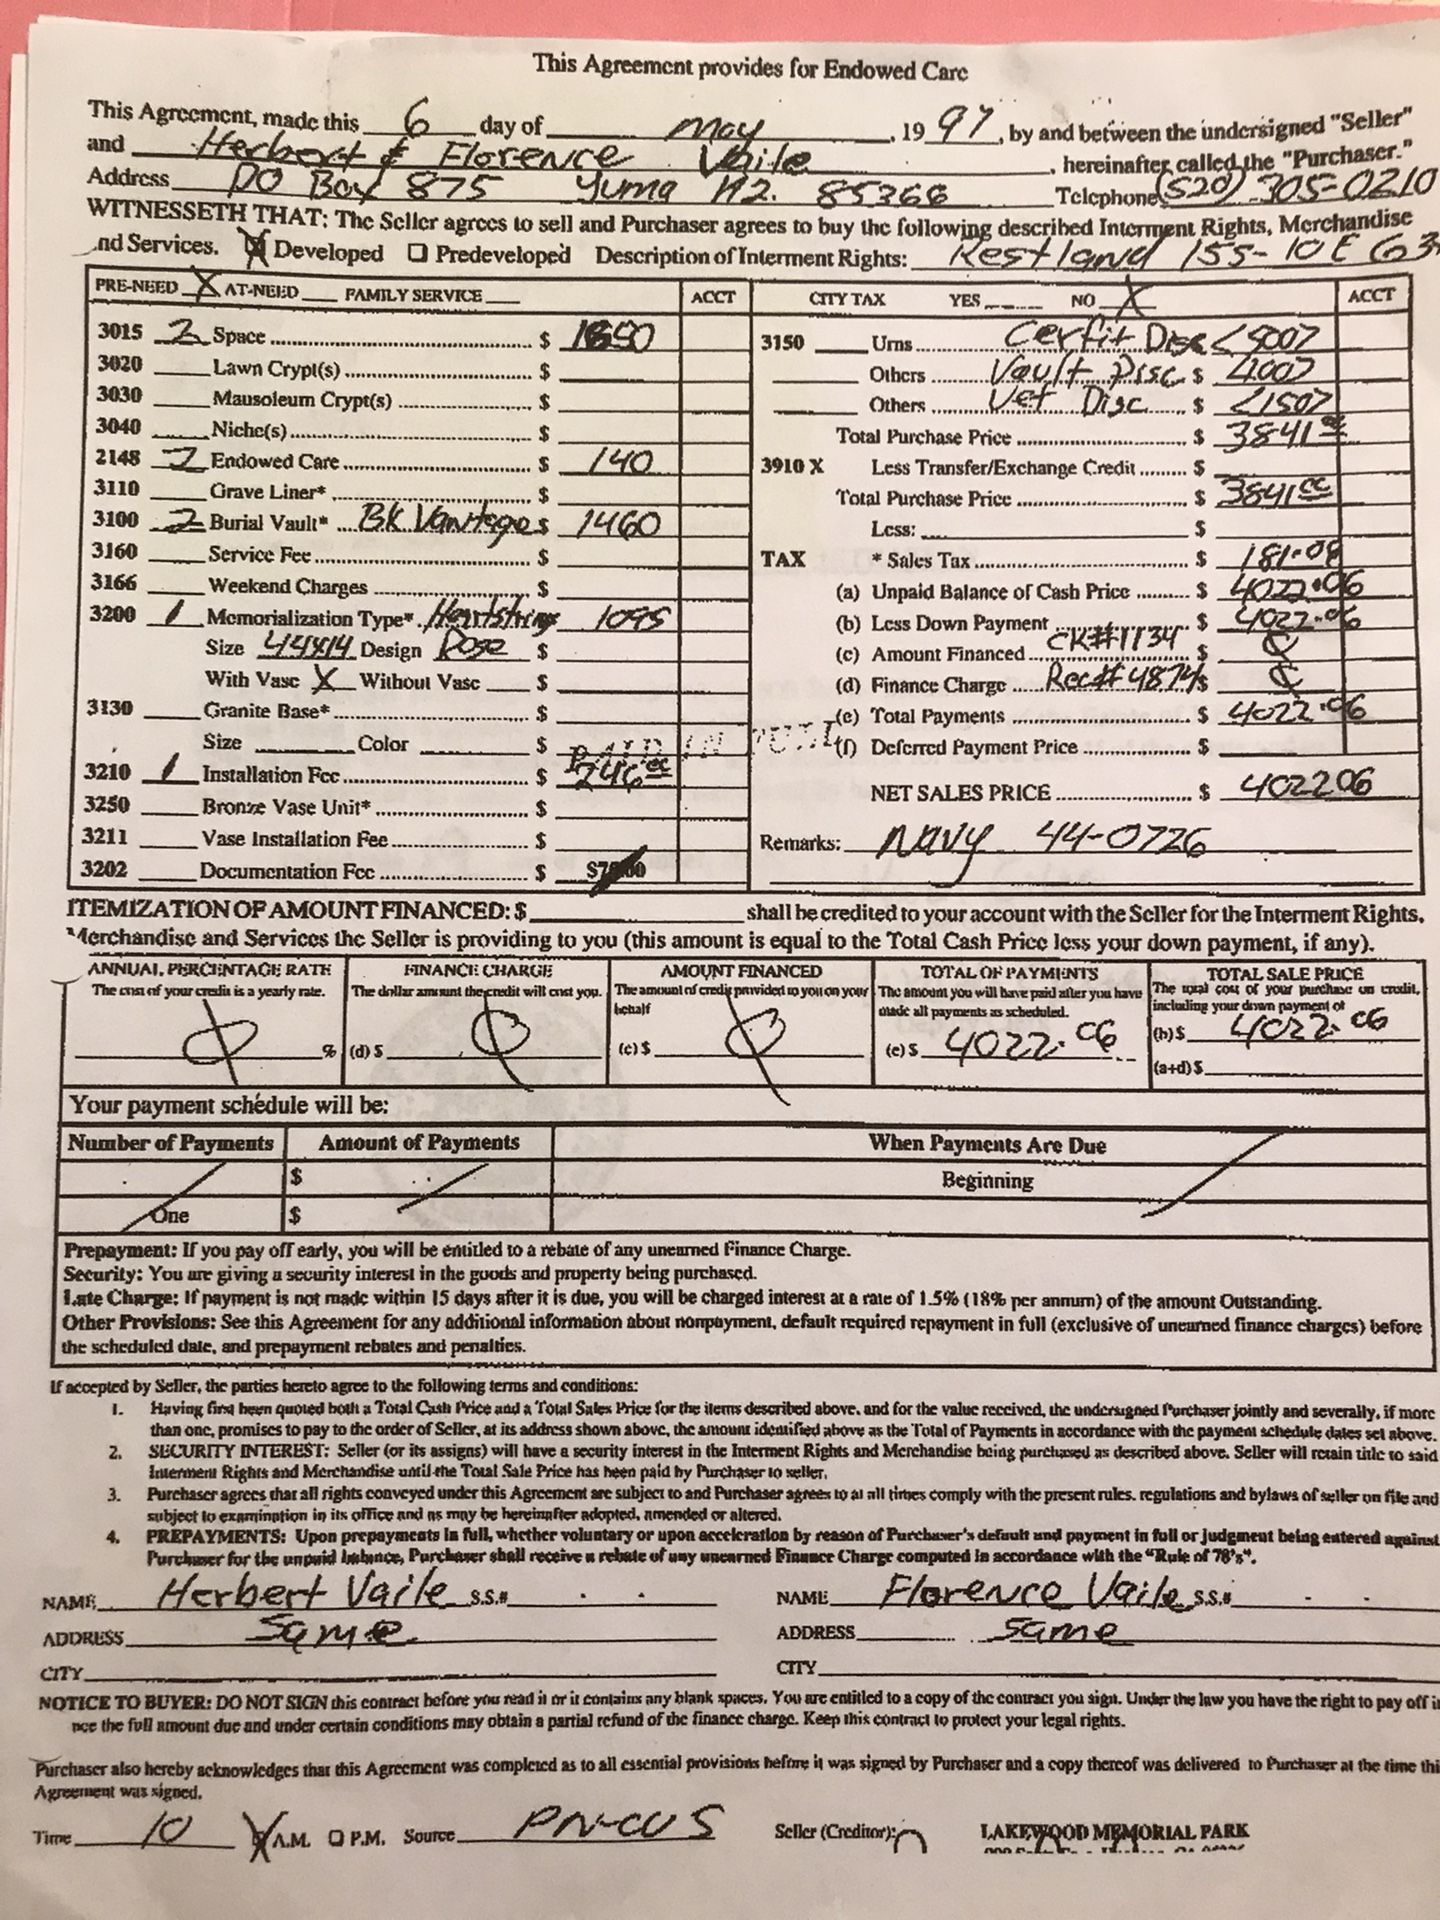 This Agreement provides for Endowed Care
This Agreement, made this 6 day of May, 1997, by and between the undersigned "Seller"
and Herbert & Florence Vaile, hereinafter called the "Purchaser."
Address PO Box 875 Yuma AZ. 85366 Telephone (520) 305-0210
WITNESSETH THAT: The Seller agrees to sell and Purchaser agrees to buy the following described Interment Rights, Merchandise
nd Services. X Developed ☐ Predeveloped Description of Interment Rights: Restland 155-10E G3
PRE-NEED X AT-NEED ___ FAMILY SERVICE ___ ACCT
3015 2 Space $ 1850
3020 Lawn Crypt(s) $
3030 Mausoleum Crypt(s) $
3040 Niche(s) $
2148 2 Endowed Care $ 140
3110 Grave Liner* $
3100 2 Burial Vault* BK Vantage $ 1460
3160 Service Fee $
3166 Weekend Charges $
3200 1 Memorialization Type* Heartstrings 1095
Size 44x14 Design Rose $
With Vase X Without Vase ___ $
3130 Granite Base* $
Size ___ Color ___ $
PAID IN FULL
3210 1 Installation Fee $ 246.00
3250 Bronze Vase Unit* $
3211 Vase Installation Fee $
3202 Documentation Fee $
CITY TAX YES ___ NO X ACCT
3150 Urns Cerfit Disc <500>
Others Vault Disc $ <400>
Others Vet Disc $ <150>
Total Purchase Price $ 3841.00
3910 X Less Transfer/Exchange Credit $
Total Purchase Price $ 3841.00
Less: $
TAX * Sales Tax $ 181.06
(a) Unpaid Balance of Cash Price $ 4022.06
(b) Less Down Payment $ 4022.06
(c) Amount Financed CK#1134 $ 0
(d) Finance Charge Rec# 4874 $ 0
(e) Total Payments $ 4022.06
(f) Deferred Payment Price $
NET SALES PRICE $ 4022 06
Remarks: Navy 44-0726
ITEMIZATION OF AMOUNT FINANCED: $ ___ shall be credited to your account with the Seller for the Interment Rights,
Merchandise and Services the Seller is providing to you (this amount is equal to the Total Cash Price less your down payment, if any).
ANNUAL PERCENTAGE RATE
The cost of your credit is a yearly rate.
0 %
FINANCE CHARGE
The dollar amount the credit will cost you.
(d) $ 0
AMOUNT FINANCED
The amount of credit provided to you on your
behalf
(c) $ 0
TOTAL OF PAYMENTS
The amount you will have paid after you have
made all payments as scheduled.
(e) $ 4022.06
TOTAL SALE PRICE
The total cost of your purchase on credit,
including your down payment of
(b) $ 4022.06
(a+d) $
Your payment schedule will be:
Number of Payments Amount of Payments When Payments Are Due
$ Beginning
One $
Prepayment: If you pay off early, you will be entitled to a rebate of any unearned Finance Charge.
Security: You are giving a security interest in the goods and property being purchased.
Late Charge: If payment is not made within 15 days after it is due, you will be charged interest at a rate of 1.5% (18% per annum) of the amount Outstanding.
Other Provisions: See this Agreement for any additional information about nonpayment, default required repayment in full (exclusive of unearned finance charges) before
the scheduled date, and prepayment rebates and penalties.
If accepted by Seller, the parties hereto agree to the following terms and conditions:
1. Having first been quoted both a Total Cash Price and a Total Sales Price for the items described above, and for the value received, the undersigned Purchaser jointly and severally, if more
than one, promises to pay to the order of Seller, at its address shown above, the amount identified above as the Total of Payments in accordance with the payment schedule dates set above.
2. SECURITY INTEREST: Seller (or its assigns) will have a security interest in the Interment Rights and Merchandise being purchased as described above. Seller will retain title to said
Interment Rights and Merchandise until the Total Sale Price has been paid by Purchaser to seller.
3. Purchaser agrees that all rights conveyed under this Agreement are subject to and Purchaser agrees to at all times comply with the present rules, regulations and bylaws of seller on file and
subject to examination in its office and as may be hereinafter adopted, amended or altered.
4. PREPAYMENTS: Upon prepayments in full, whether voluntary or upon acceleration by reason of Purchaser's default and payment in full or judgment being entered against
Purchaser for the unpaid balance, Purchaser shall receive a rebate of any unearned Finance Charge computed in accordance with the "Rule of 78's".
NAME Herbert Vaile S.S.# NAME Florence Vaile S.S.#
ADDRESS Same ADDRESS same
CITY CITY
NOTICE TO BUYER: DO NOT SIGN this contract before you read it or it contains any blank spaces. You are entitled to a copy of the contract you sign. Under the law you have the right to pay off i
nce the full amount due and under certain conditions may obtain a partial refund of the finance charge. Keep this contract to protect your legal rights.
Purchaser also hereby acknowledges that this Agreement was completed as to all essential provisions before it was signed by Purchaser and a copy thereof was delivered to Purchaser at the time thi
Agreement was signed.
Time 10 X A.M. ☐ P.M. Source PN-CUS Seller (Creditor): LAKEWOOD MEMORIAL PARK